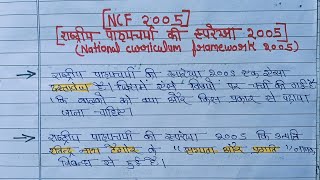 [NCF 2005]
[राष्ट्रीय पाठ्यचर्या की रूपरेखा 2005]
(National curriculum framework 2005)
राष्ट्रीय पाठ्यचर्या की रूपरेखा 2005 एक ऐसा
दस्तावेज है। जिसमें ऐसे विषयों पर चर्चा की गई है
कि बालकों को क्या और किस प्रकार से पढ़ाया
जाना चाहिए।
राष्ट्रीय पाठ्यचर्या की रूपरेखा 2005 कि उत्पत्ति
रविन्द्र नाथ टैगोर के "सभ्यता और प्रगति"
निबन्ध से हुई है।